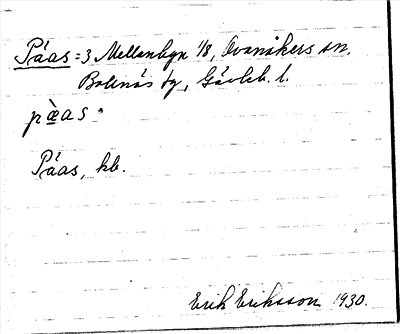 Påas = 3 Mellanbyn 1/8, Ovanåkers sn.
Bollnäs tg, Gävleb. l.
pæ̀as.
Påas, kb.
Erik Eriksson 1930.